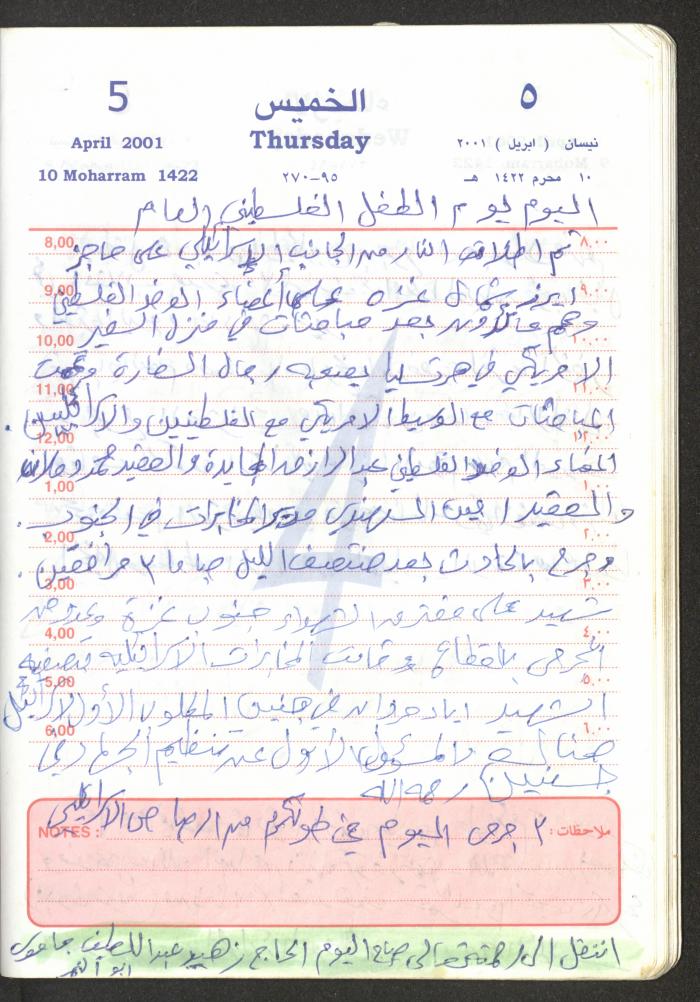 5 الخميس ٥
April 2001 Thursday نيسان ( ابريل ) ٢٠٠١
10 Moharram 1422 ٩٥-٢٧٠ ١٠ محرم ١٤٢٢ هـ
اليوم يوم الطفل الفلسطيني العام
8,00 تم اطلاق النار من الجانب الاسرائيلي على حاجز ٨,٠٠
9,00 ايرز شمال غزة على أعضاء الوفد الفلسطيني ٩,٠٠
وهم عائدون بعد مباحثات في منزل السفير
10,00 ١٠,٠٠
الامريكي في هرتسليا بصحبة رجال السفارة وتمت
11,00 ١١,٠٠
المباحثات مع الوسيط الامريكي مع الفلسطينيين والاسرائيليين .
12,00 ١٢,٠٠
اعضاء الوفد الفلسطيني عبد الرازق المجايدة والعقيد محمد دحلان
1,00 ١,٠٠
والعقيد امين الهندي مدير المخابرات في الجنوب .
2,00 ٢,٠٠
وجرح بالحادث بعد منتصف الليل ٣ مرافقين .
3,00 ٣,٠٠
شهيد على مفترق الشهداء جنوب غزة
4,00 ٤,٠٠
الجرحى بالقطاع وقامت المخابرات الاسرائيلية بتصفية
5,00 ٥,٠٠
الشهيد اياد حردان في جنين المطلوب الأول لاسرائيل
6,00 ٦,٠٠
هناك والمسؤول الأول عن تنظيم الجهاد في
جنين رحمه الله
NOTES : ٢ جرحى اليوم في طولكرم من الرصاص الاسرائيلي ملاحظات :
انتقل الى رحمته تعالى صباح اليوم الحاج زهير عبد اللطيف
ابو
4